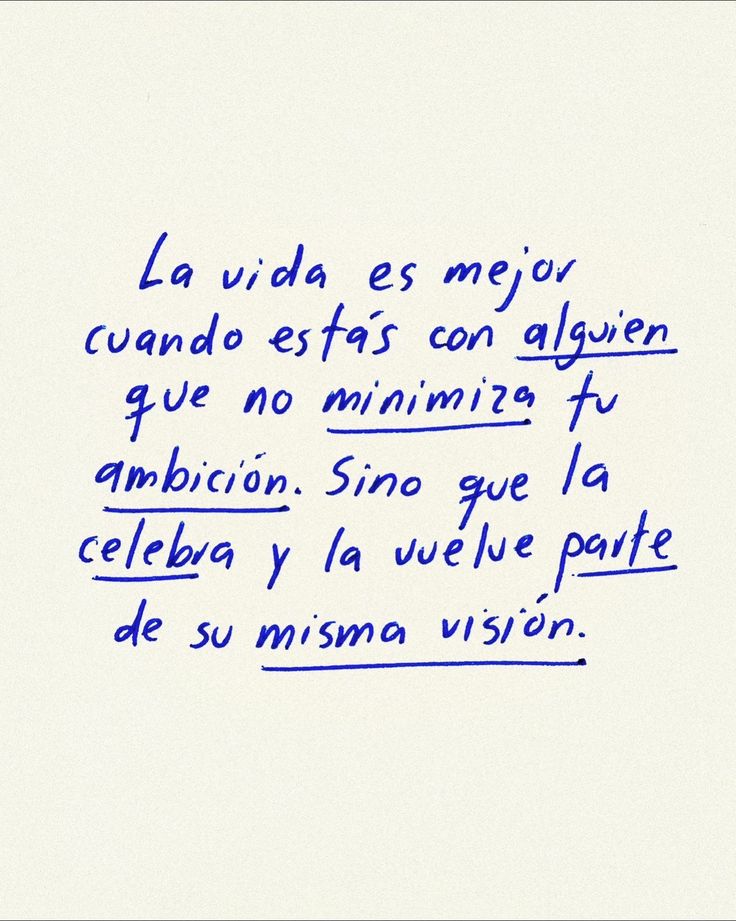 La vida es mejor
cuando estás con alguien
que no minimiza tu
ambición. Sino que la
celebra y la vuelve parte
de su misma visión.